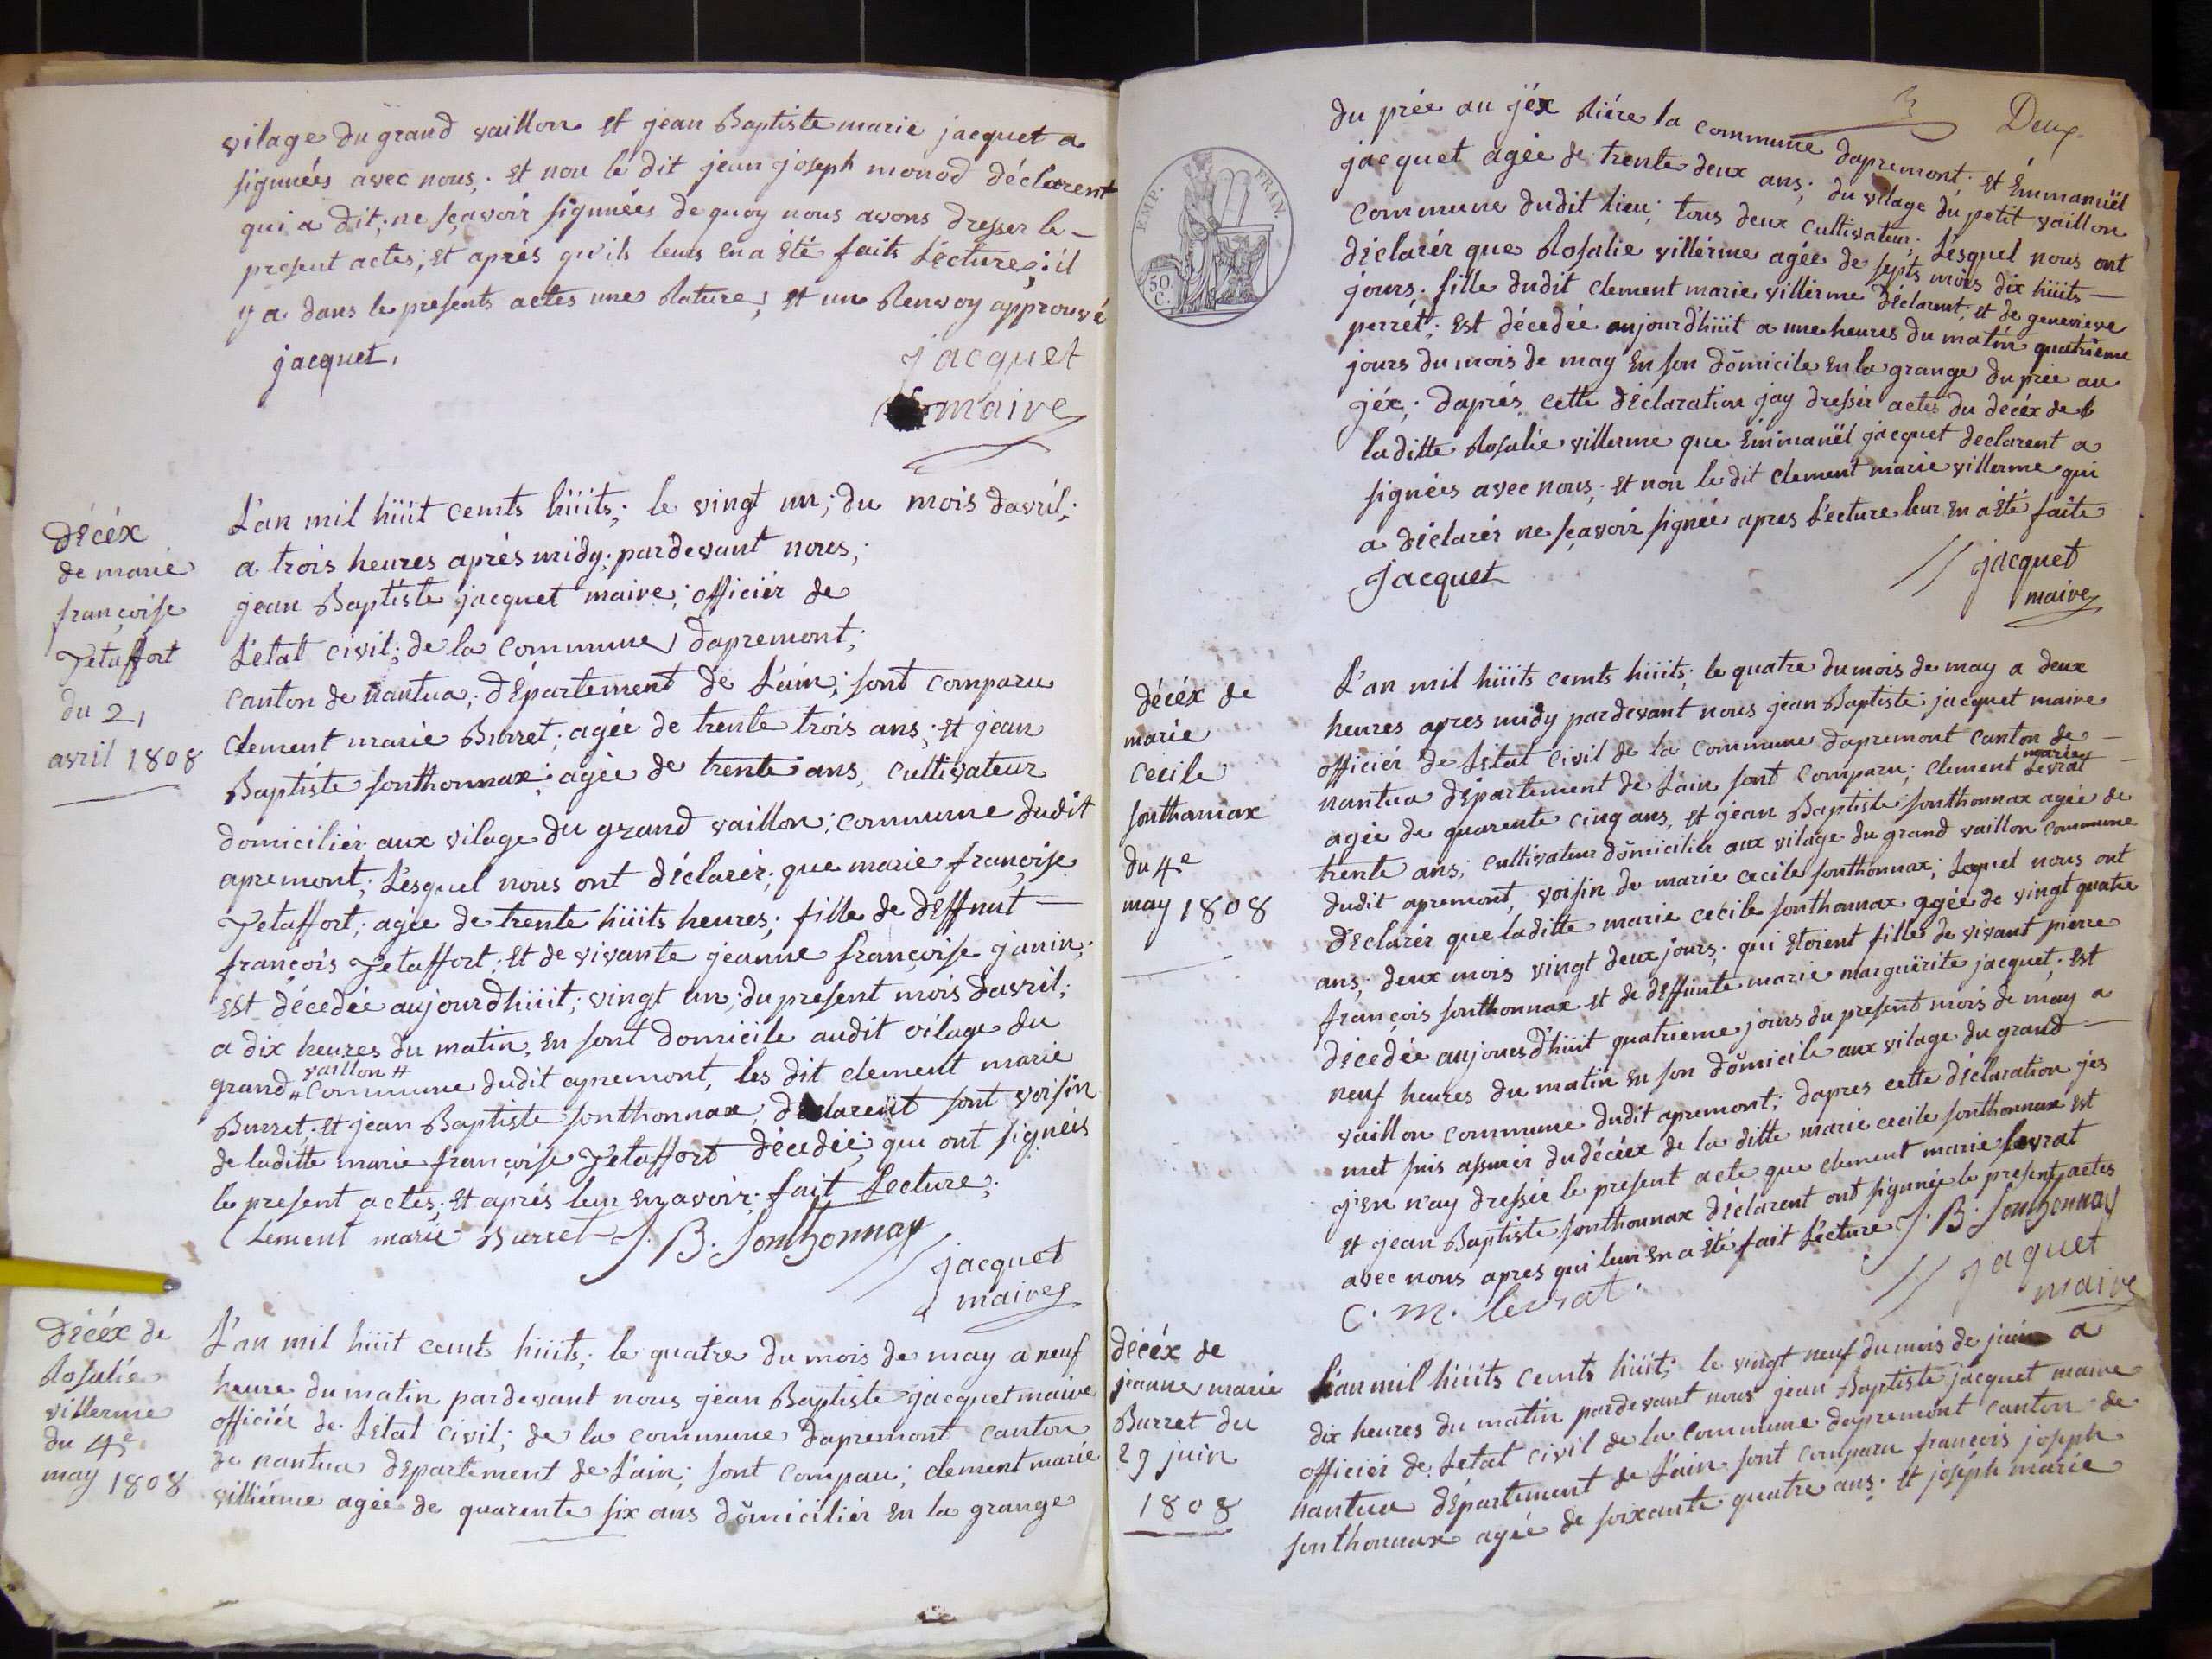 vilage du grand vaillon et jean Baptiste marie jacquet a
signnées avec nous; et non le dit jean joseph monod déclarent
qui a dit; ne sçavoir signnées de quoy nous avons dresser le
present actes; et aprés qu'ils leurs en a été faits Lécture; il
y a dans le presents actes une Rature; et un Renvoy approuvé
jacquet,
jacquet
maire
décéx
de marie
françoise
Jetaffort
du 21
avril 1808
L'an mil hüit cents hüits; le vingt un; du mois davril;
a trois heures aprés midy; pardevant nous;
jean Baptiste jacquet maire; officiér de
L'état civil; de la commune dapremont;
canton de nantua; département de L'ain; sont comparu
clement marie Burret; agée de trente trois ans; et jean
Baptiste sonthonnax; agée de trente ans, cultivateur
domiciliér aux vilage du grand vaillon; commune dudit
apremont; Lesquel nous ont déclarér; que marie françoise
Jetaffort; agée de trente hüits heures; fille de deffunt
françois Jetaffort; et de vivante jeanne françoise janin;
est décedée aujourdhüit; vingt un; du present mois davril;
a dix heures du matin, en sont domicile audit vilage du
vaillon #
grand # commune dudit apremont, les dit clement marie
Burret; et jean Baptiste sonthonnax; déclarent sont voisin
de laditte marie françoise Jetaffort décedée; qui ont signées
le present actes; et aprés leur en avoir fait Lecture;
Clement marie Burret J. B. Sonthonnax
jacquet
maire
décéx de
Rosalie
villerme
du 4e
may 1808
L'an mil hüit cents hüits; le quatre du mois de may a neuf
heure du matin pardevant nous jean Baptiste jacquet maire
officiér de Létat civil; de la commune dapremont canton
de nantua département de L'ain; sont compau; clement marie
villiérme agée de quarente six ans domiciliér en la grange
Deux
du prée au jéx Riére la commune dapremont; et Emmanuël
jacquet agée de trente deux ans; du vilage du petit vaillon
commune dudit lieu; tous deux cultivateur; Lesquel nous ont
déclarér que Rosalie villérme agée de septs mois dix hüits
jours; fille dudit clement marie villerme déclarent; et de genevieve
perrét; est décedée aujourdhüit a une heures du matin quatrieme
jours du mois de may en son domicile en la grange du prée au
jéx; daprés cette déclaration jay dressér actes du décéx de
laditte Rosalie villerme que Emmanuël jacquet declarent a
signées avec nous; et non le dit clement marie villerme qui
a déclarés ne sçavoir signée apres Lecture leur en a été faite
Jacquet
jacquet
maire
EMP. FRAN.
50 C.
décéx de
marie
cecile
sonthonnax
du 4e
may 1808
L'an mil hüits cents hüits; le quatre du mois de may a deux
heures apres midy pardevant nous jean Baptiste jacquet maire
officiér de Létat civil de la commune dapremont canton de
marie
nantua département de L'ain sont comparu; clement Levrat
agée de quarente cinq ans, et jean Baptiste sonthonnax agée de
trente ans; cultivateur domiciliér aux vilage du grand vaillon commune
dudit apremont, voisin de marie cecile sonthonnax; Lequel nous ont
déclarér que laditte marie cecile sonthonnax agée de vingt quatre
ans; deux mois vingt deux jours; qui etoient fille de vivant pierre
françois sonthonnax et de deffunte marie margüerite jacquet; est
décedée aujouesd'hüit quatrieme jours du present mois de may a
neuf heures du matin en son domicile aux vilage du grand
vaillon commune dudit apremont; dapres cette déclaration jes
met suis assurer du décéex de la ditte marie cecile sonthonnax est
j'en n'ay dressée le present acte que clement marie Levrat
et jean Baptiste sonthonnax déclarent ont signnée le present actes
avec nous apres qui leur en a été fait Lecture J. B. Sonthonnax
C. m. levrat
jaquet
maire
décéx de
jeanne marie
Burret du
29 juin
1808
L'an mil hüits cents hüit; le vingt neuf du mois de juin a
dix heures du matin pardevant nous jean Baptiste jacquet maire
officiér de Letat civil de la commune dapremont canton de
nantua département de L'ain sont comparu françois joseph
sonthonnax agée de soixante quatre ans; et joseph marie